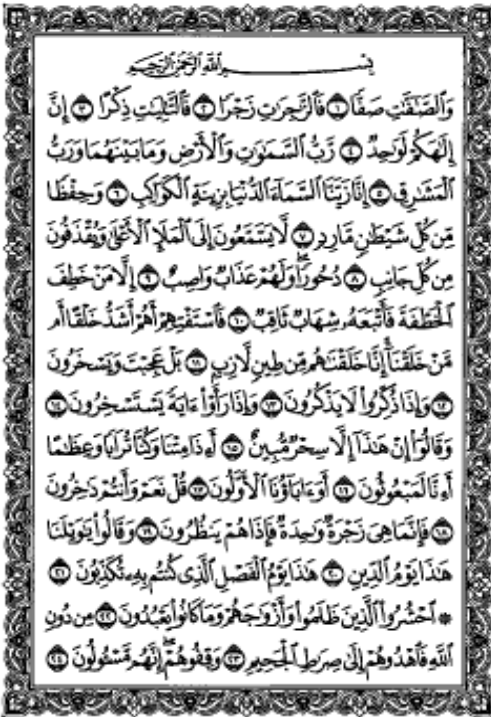 بِسْمِ ٱللَّهِ ٱلرَّحْمَٰنِ ٱلرَّحِيمِ
وَٱلصَّٰٓفَّٰتِ صَفًّا ١ فَٱلزَّٰجِرَٰتِ زَجْرًا ٢ فَٱلتَّٰلِيَٰتِ ذِكْرًا ٣ إِنَّ
إِلَٰهَكُمْ لَوَٰحِدٌ ٤ رَّبُّ ٱلسَّمَٰوَٰتِ وَٱلْأَرْضِ وَمَا بَيْنَهُمَا وَرَبُّ
ٱلْمَشَٰرِقِ ٥ إِنَّا زَيَّنَّا ٱلسَّمَآءَ ٱلدُّنْيَا بِزِينَةٍ ٱلْكَوَاكِبِ ٦ وَحِفْظًا
مِّن كُلِّ شَيْطَٰنٍ مَّارِدٍ ٧ لَّا يَسَّمَّعُونَ إِلَى ٱلْمَلَإِ ٱلْأَعْلَىٰ وَيُقْذَفُونَ
مِن كُلِّ جَانِبٍ ٨ دُحُورًا ۖ وَلَهُمْ عَذَابٌ وَاصِبٌ ٩ إِلَّا مَنْ خَطِفَ
ٱلْخَطْفَةَ فَأَتْبَعَهُۥ شِهَابٌ ثَاقِبٌ ١٠ فَٱسْتَفْتِهِمْ أَهُمْ أَشَدُّ خَلْقًا أَم
مَّنْ خَلَقْنَآ ۚ إِنَّا خَلَقْنَٰهُم مِّن طِينٍ لَّازِبٍۭ ١١ بَلْ عَجِبْتَ وَيَسْخَرُونَ
١٢ وَإِذَا ذُكِّرُوا۟ لَا يَذْكُرُونَ ١٣ وَإِذَا رَأَوْا۟ ءَايَةً يَسْتَسْخِرُونَ ١٤
وَقَالُوٓا۟ إِنْ هَٰذَآ إِلَّا سِحْرٌ مُّبِينٌ ١٥ أَءِذَا مِتْنَا وَكُنَّا تُرَابًا وَعِظَٰمًا
أَءِنَّا لَمَبْعُوثُونَ ١٦ أَوَءَابَآؤُنَا ٱلْأَوَّلُونَ ١٧ قُلْ نَعَمْ وَأَنتُمْ دَٰخِرُونَ
١٨ فَإِنَّمَا هِىَ زَجْرَةٌ وَٰحِدَةٌ فَإِذَا هُمْ يَنظُرُونَ ١٩ وَقَالُوا۟ يَٰوَيْلَنَا
هَٰذَا يَوْمُ ٱلدِّينِ ٢٠ هَٰذَا يَوْمُ ٱلْفَصْلِ ٱلَّذِى كُنتُم بِهِۦ تُكَذِّبُونَ ٢١
۞ ٱحْشُرُوا۟ ٱلَّذِينَ ظَلَمُوا۟ وَأَزْوَٰجَهُمْ وَمَا كَانُوا۟ يَعْبُدُونَ ٢٢ مِن دُونِ
ٱللَّهِ فَٱهْدُوهُمْ إِلَىٰ صِرَٰطِ ٱلْجَحِيمِ ٢٣ وَقِفُوهُمْ ۖ إِنَّهُم مَّسْـُٔولُونَ ٢٤